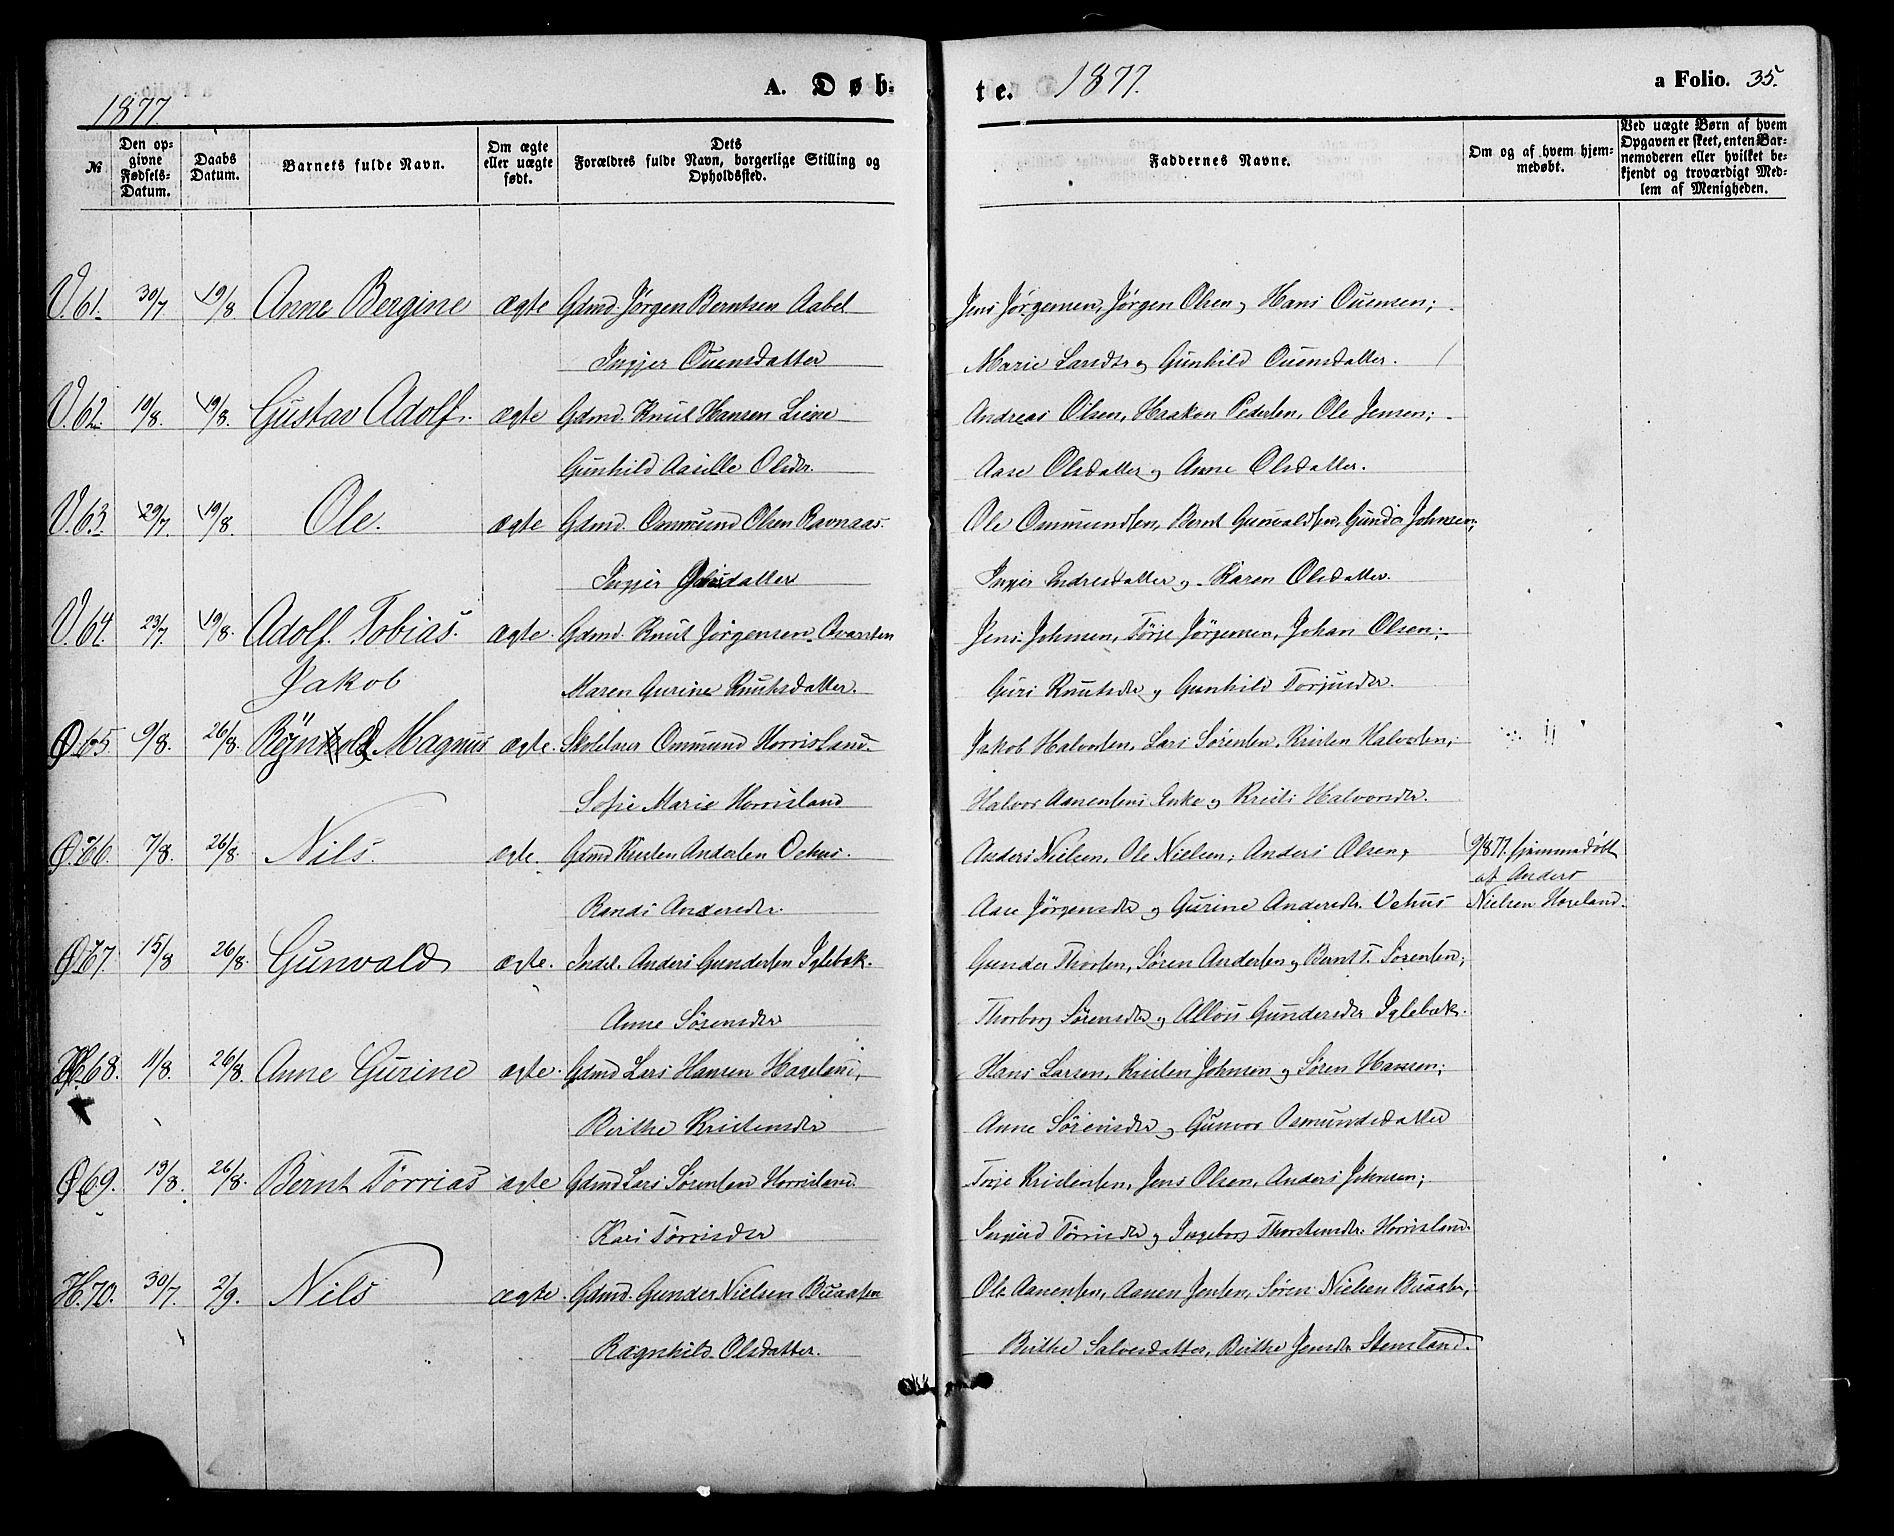 1877.
A. Døb-
te.
1877.
a Folio. 35.
№
Den opgivne Fødsels-Datum.
Daabs Datum.
Barnets fulde Navn.
Om ægte eller uægte født.
Dets Forældres fulde Navn, borgerlige Stilling og Opholdssted.
Faddernes Navne.
Om og af hvem hjemmedøbt.
Ved uægte Børn af hvem Opgaven er skeet, enten Barnemoderen eller hvilket bekjendt og troværdigt Medlem af Menigheden.
V. 61. 30/7 19/8 Anne Bergine ægte Gdmd. Jørgen Berntsen Aabel Jens Jørgensen, Jørgen Olsen og Hans Ouensen;
Ingjer Ouensdatter Marie Larsdtr og Gunhild Ouensdatter.
V. 62. 10/8. 19/8. Gustav Adolf. ægte Gdmd. Knut Hansen Liene Andreas Olsen, Haakon Pedersen, Ole Jensen;
Gunhild Aasille Olsdr. Aase Olsdatter og Anne Olsdatter.
V. 63. 29/7. 19/8. Ole. ægte Gdmd. Ommund Olsen Ravnaas. Ole Ommundsen, Bernt Gunvaldsen, Gunder Johnsen;
Ingjer Ingjer Endresdatter og Karen Olsdatter.
V. 64. 23/7. 19/8. Adolf Tobias. ægte. Gdmd. Knut Jørgensen Jens Johnsen, Tørje Jørgensen, Johan Olsen;
Jakob Maren Gurine Knutsdatter. Guri Knutsdr og Gunhild Torjusdr.
Ø. 65. 9/8. 26/8. Magnus ægte. Skolelærer Ommund Horrisland. Jakob Halvorsen, Lars Sørensen, Kristen Halvorsen;
Sofie Marie Horrisland Halvor Aanensens Enke og Kristi Halvorsdr.
Ø. 66. 7/8. 26/8. Nils. ægte. Gdmd Kristen Andersen Vehus. Anders Nielsen, Ole Nielsen; Anders Olsen, 9/8 77. hjemmedøbt
af Anders
Randi Andersdr. Aase Jørgensdr og Gurine Andersdr. Vehus Nielsen Hageland.
Ø. 67. 15/8 26/8. Gunvald ægte. Inds. Anders Gundersen Iglebæk. Gunder Thorsen, Søren Andersen og Bernt T. Sørensen;
Anne Sørensdr Thorbor Sørensdr og Allou Gundersdr Iglebæk.
H. 68. 11/8. 26/8. Anne Gurine ægte. Gdmd Lars Hansen Hageland, Hans Larsen, Kristen Johnsen og Søren Hansen;
Birthe Kristensdr Anne Sørensdr og Gunvor Osmundsdatter
Ø. 69. 19/8. 26/8. Bernt Tørrias ægte Gdmd Lars Sørensen Horrisland. Torje Kristensen, Jens Olsen, Anders Johnsen;
Kari Tørrisdr Ingjerd Tørrisdr og Ingeborg Thorstensdr. Horrisland.
H. 70. 30/7. 2/9. Nils ægte. Gdmd. Gunder Nielsen Buaasen Ole Aanensen, Aanen Jensen, Søren Nielsen Buaas;
Ragnhild Olsdatter. Birthe Salvesdatter, Birthe Jensdr Stensland.